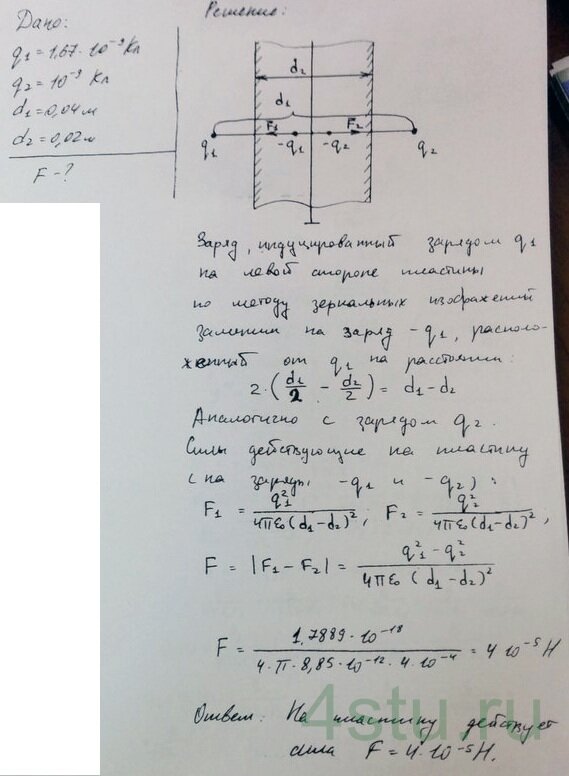 Дано:
q1 = 1,67·10⁻⁹ Кл
q2 = 10⁻⁹ Кл
d1 = 0,04 м
d2 = 0,02 м
F - ?
Решение:
d2
d1
F1 F2
q1 -q1 -q2 q2
Заряд, индуцированный зарядом q1
на левой стороне пластины
по методу зеркальных изображений
заменим на заряд -q1, располо-
женный от q1 на расстоянии:
2·(d1/2 - d2/2) = d1 - d2
Аналогично с зарядом q2.
Силы действующие на пластину
(на заряды -q1 и -q2):
F1 = q1²/4πε0(d1-d2)²; F2 = q2²/4πε0(d1-d2)²,
F = |F1 - F2| = q1² - q2²/4πε0 (d1-d2)²
F = 1,7889·10⁻¹⁸/4·π·8,85·10⁻¹²·4·10⁻⁴ = 4·10⁻⁵ Н
Ответ: На пластину действует
сила F = 4·10⁻⁵ Н.
4stu.ru